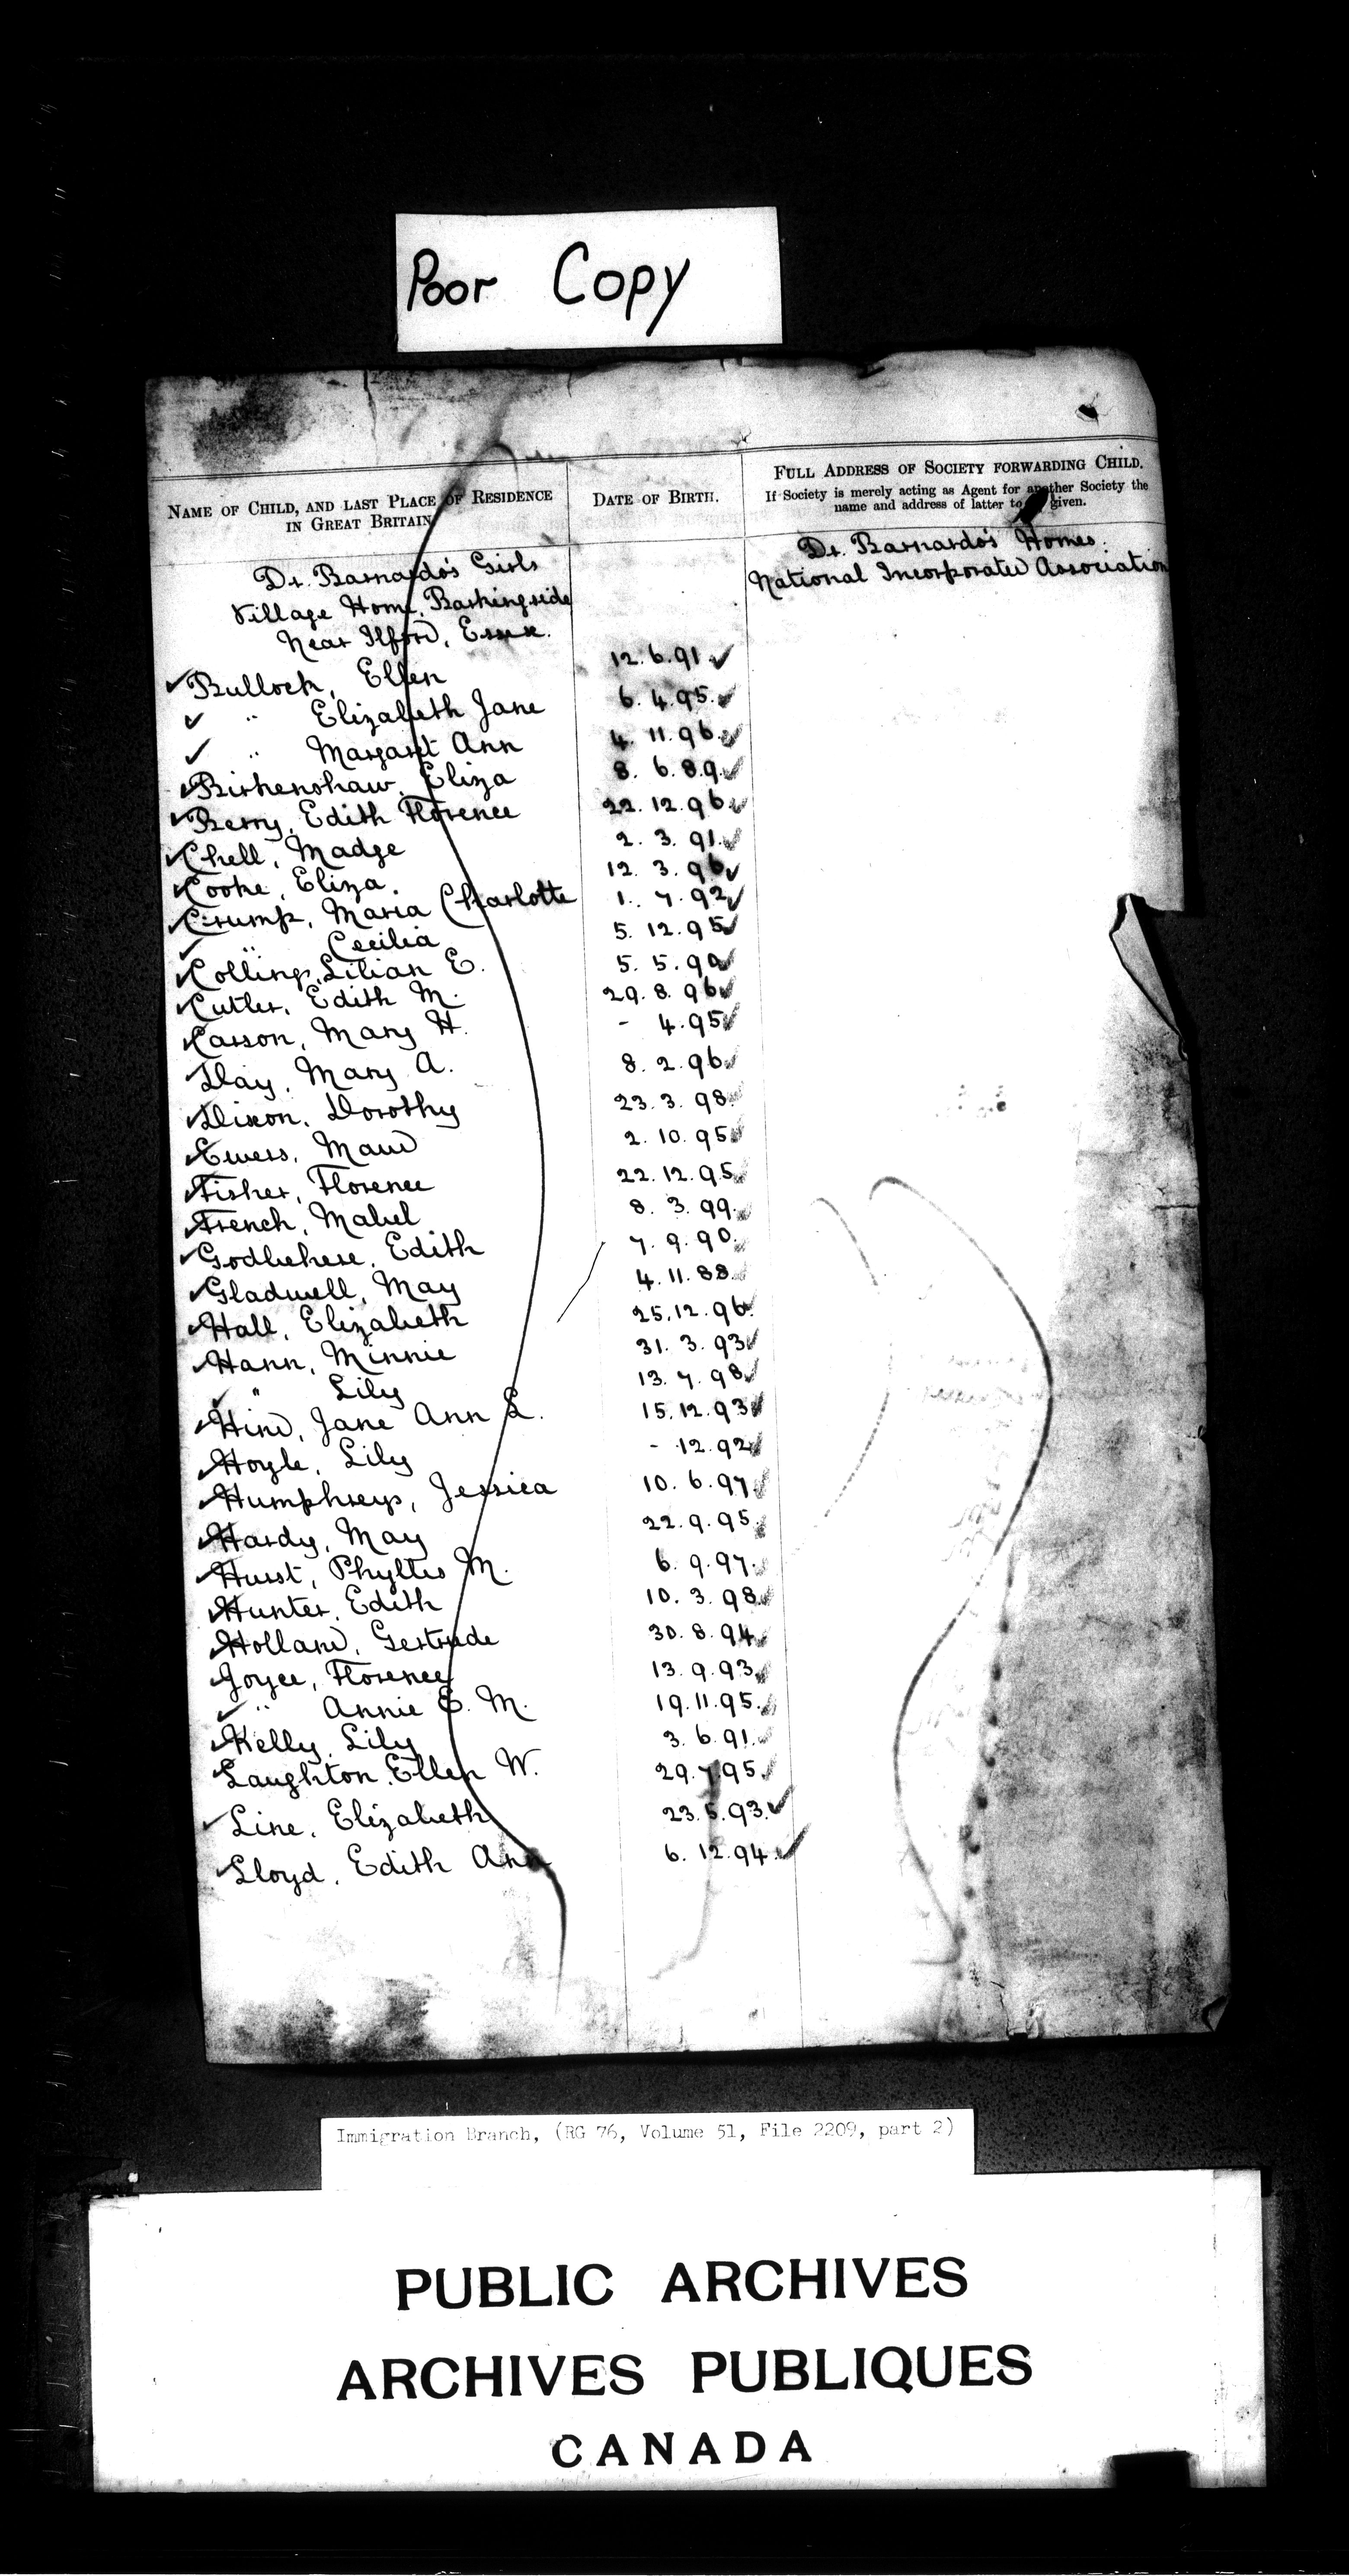 Poor Copy
NAME OF CHILD, AND LAST PLACE OF RESIDENCE
IN GREAT BRITAIN.
DATE OF BIRTH.
FULL ADDRESS OF SOCIETY FORWARDING CHILD.
If Society is merely acting as Agent for another Society the
name and address of latter to given.
Dr. Barnardo's Girls
Village Home, Barkingside
Near Ilford, Essex.
Dr. Barnardo's Homes.
National Incorporated Association
Bullock, Ellen 12.6.91
" Elizabeth Jane 6.4.95
" Margaret Ann 4.11.96
Birkenshaw, Eliza 8.6.89
Berry, Edith Florence 22.12.96
Chell, Madge 2.3.91
Cooke, Eliza. 12.3.96
Crump, Maria Charlotte 1.7.92
" Cecilia 5.12.95
Collings, Lilian E. 5.5.90
Cutler, Edith M. 29.8.96
Carson, Mary H. - 4.95
Day, Mary A. 8.2.96
Dixon, Dorothy 23.3.98
Ewers, Maud 2.10.95
Fisher, Florence 22.12.95
French, Mabel 8.3.99
Godbehere, Edith 7.9.90
Gladwell, May 4.11.88
Hall, Elizabeth 25.12.96
Hann, Minnie 31.3.93
" Lily 13.7.98
Hind, Jane Ann L. 15.12.93
Hoyle, Lily - 12.92
Humphreys, Jessica 10.6.97
Hardy, May 22.9.95
Hurst, Phyllis M. 6.9.97
Hunter, Edith 10.3.98
Holland, Gertrude 30.8.94
Joyce, Florence 13.9.93
" Annie E. M. 19.11.95
Kelly, Lily 3.6.91
Laughton, Ellen W. 29.7.95
Line, Elizabeth 23.5.93
Lloyd, Edith Ann 6.12.94
Immigration Branch, (RG 76, Volume 51, File 2209, part 2)
PUBLIC ARCHIVES
ARCHIVES PUBLIQUES
CANADA